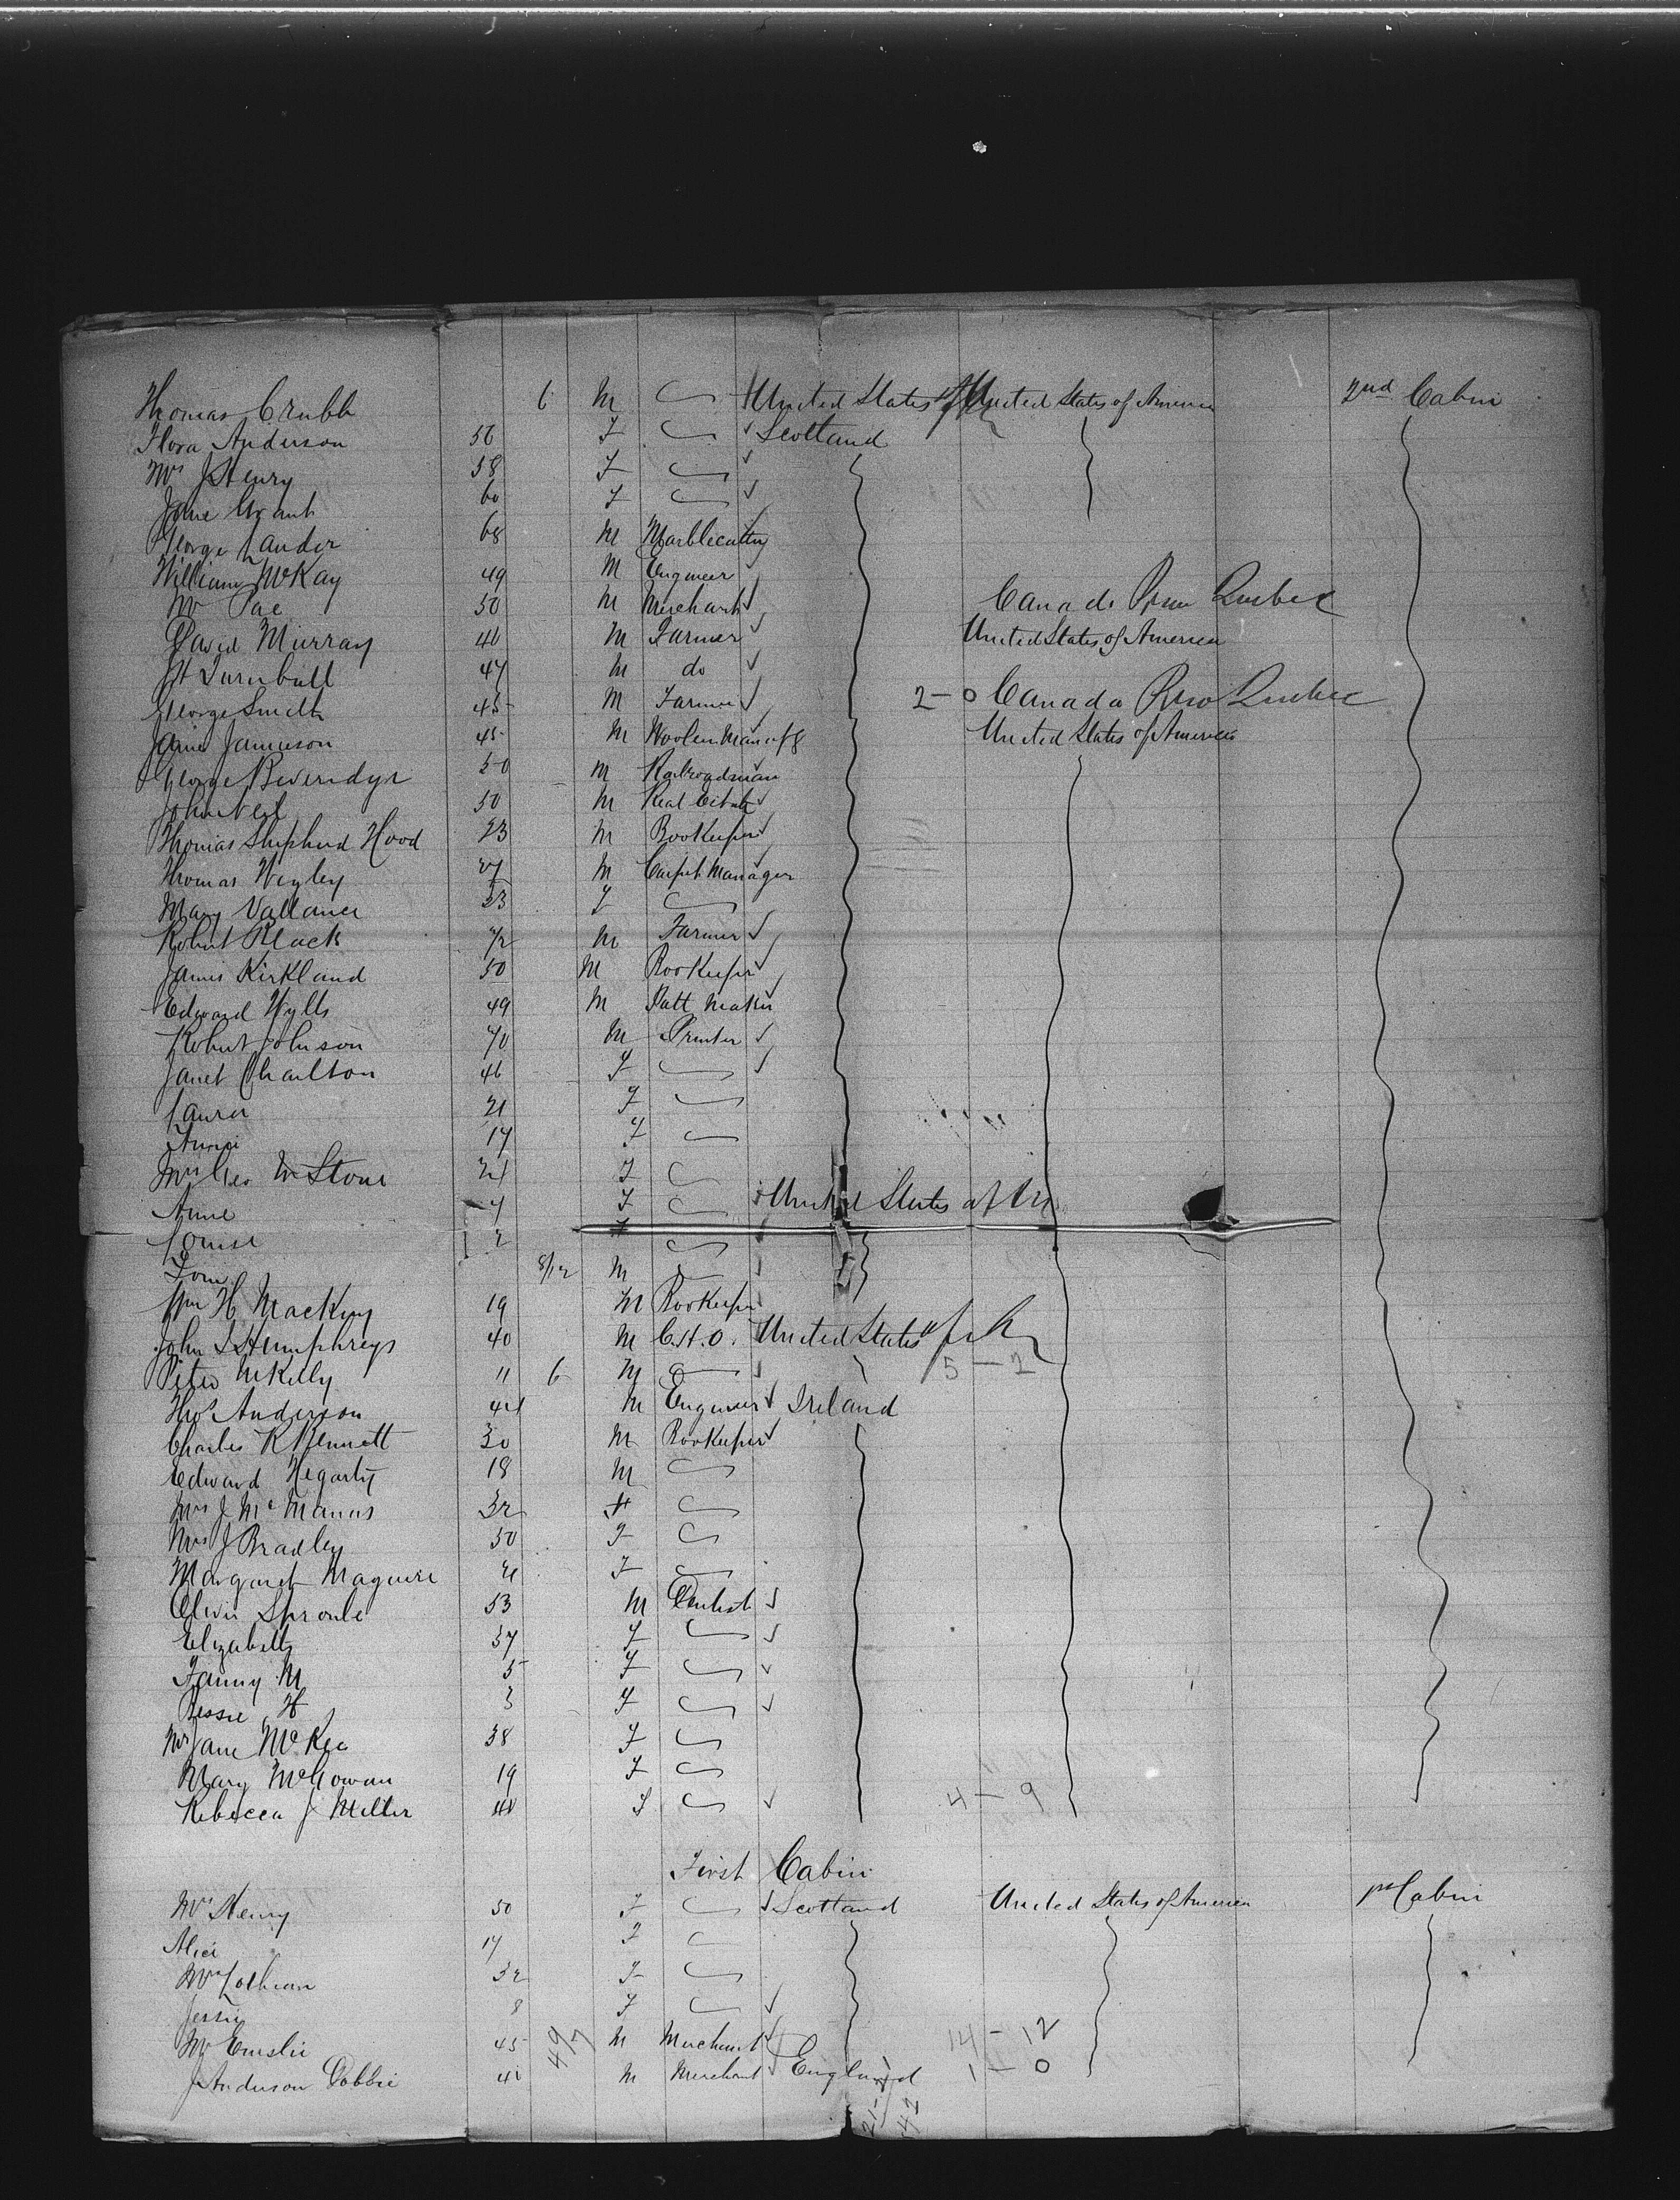 Thomas Crubb 6 M United States of A United States of America 2nd Cabin
Flora Anderson 56 F Scotland
Mrs J Henry 58 F
Jane Grant 60 F
George Lauder 68 M Marblecutting
William McKay 49 M Engineer
Mr Pae 50 M Merchant Canada Quebec
David Murray 40 M Farmer United States of America
Jt Turnbull 47 M do
George Smith 45 M Farmer 2-0 Canada Quebec
Jamieson 45 M Woolen Manufg United States of America
George Beveridge 50 M Railroadman
John Neil 50 M Real Estate
Thomas Shepherd Hood 23 M Bookeeper
Thomas Wigley M Carpet Manager
Mary Vallance 23 F
Robert Black M Farmer
James Kirkland 50 M Bookeeper
Edward Wylls 49 M Patt Maker
Robert Johnson 70 M Printer
Janet Charlton 46 F
Laura 21 F
Annie 17 F
Mrs Geo W Stone F
Anne F United States of
Louise 2 F
Tom 8/12 M
Wm H Mackey 19 M Bookeeper
John L Humphreys 40 M C.H.O. United States of A
Peter McKelly 11 6 M 5-2
Thos Anderson M Engineer Ireland
Charles R Bennett 30 M Bookeeper
Edward Hegarty 18 M
Mrs J McManus 32 F
Mrs J Bradley 50 F
Margaret Maguire 21 F
Sproule 53 M Dentist
Elizabeth 37 F
Fanny M 5 F
Bessie H 3 F
Mrs Jane McKee 38 F
Mary McGowan 19 F
Rebecca J Miller F 4-9
First Cabin
Mrs Henry 50 F Scotland United States of America 1st Cabin
Alice 17 F
Mrs Lothian 32 F
Jessie 8 F
Mr Emslie 45 49/7 M Merchant 14-12
J Anderson Dobbie 41 M Merchant England 1-0
21-42